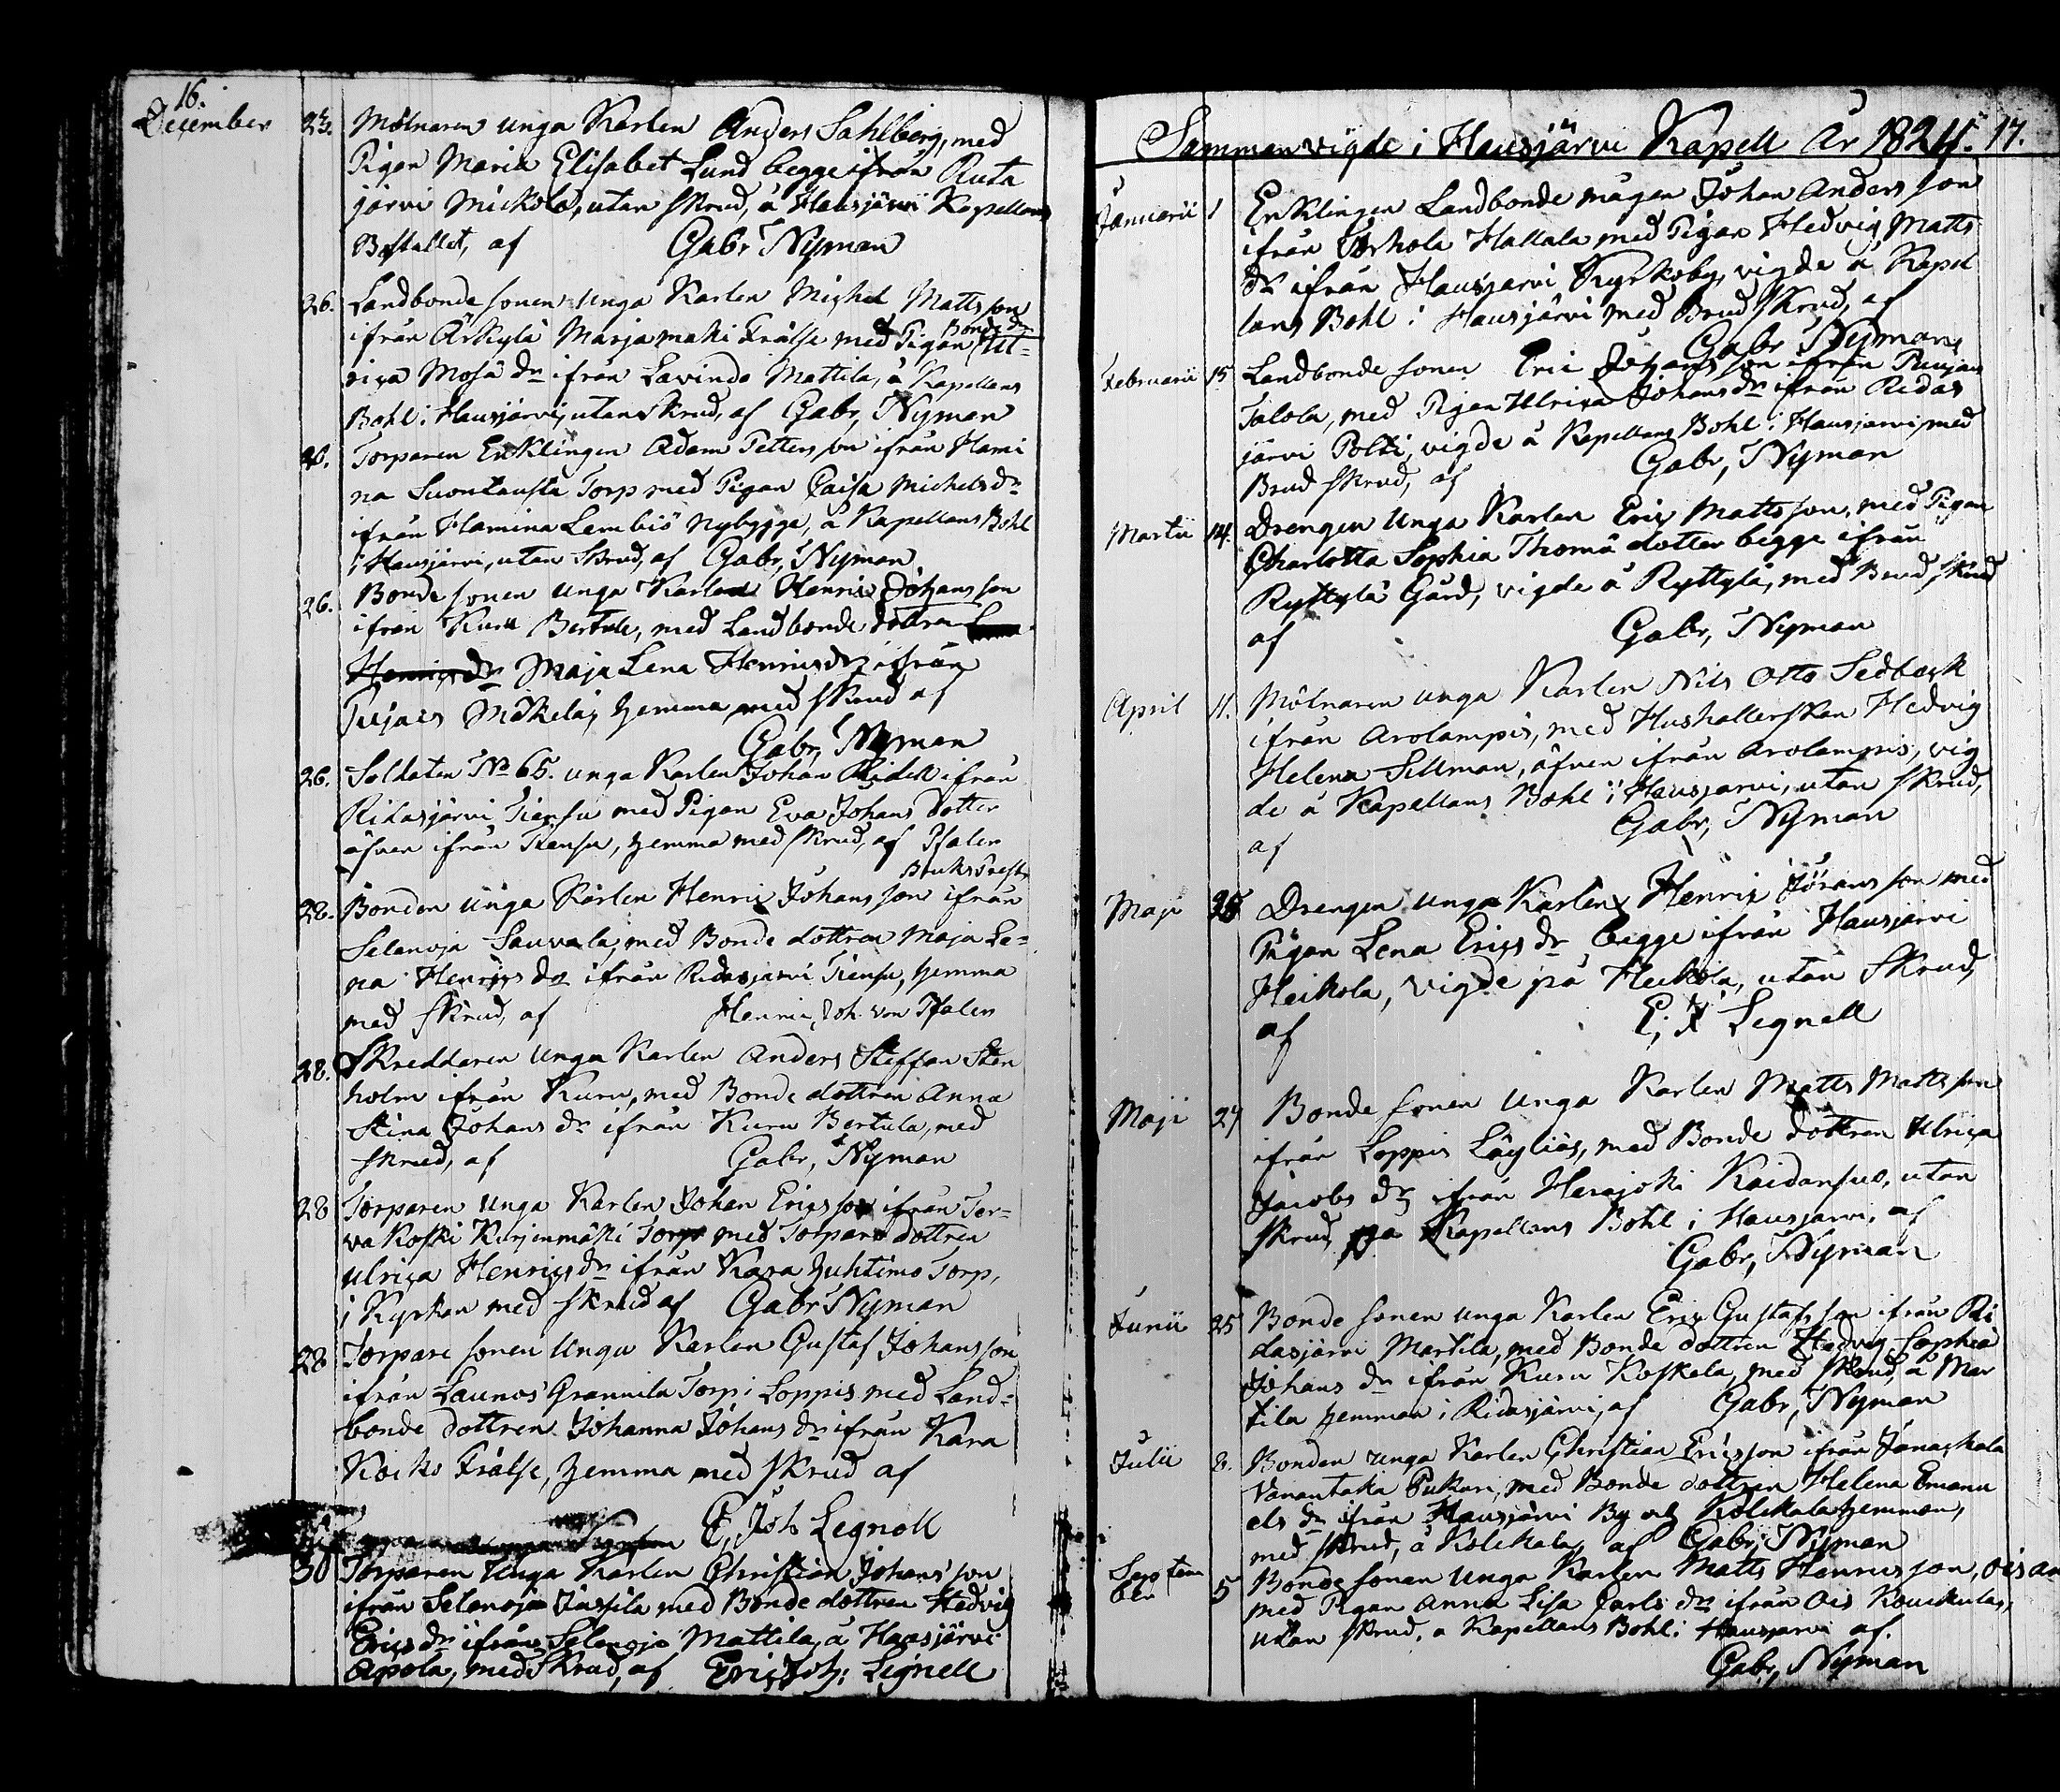 16.
December 23. Mölnaren unga Karlen Anders Sahlberg, med
Pigan Maria Elisabet Lund begge ifrån Ruta
järvi Mickola, utan skrud, å Hausjärvi Kapellans
Bostallet, af Gabr Nyman
26. Landbonde sonen unga Karlen Michel Matts son
ifrån Arkylä Marjamäki Frälse med Bonde dr Pigan Ul=
rica Mosis dr ifrån Lavinda Mattila, å Kapellans
Bohl i Hausjärvi, utan skrud, af Gabr, Nyman
26. Torparen Enklingen Adam Petters son ifrån Hami
na Suontausta Torp med Pigan Caisa Michels dr
ifrån Hamina Lembiö Nybygge, å Kapellans Bohl
i Hausjärvi, utan skrud, af Gabr, Nyman
26. Bonde sonen unga Karlen Henric Johans son
ifrån Kuru Bertula, med Landbonde dottren
Henrics dr Maja Lena Henrics dr ifrån
Pujais Mäkelä, hemma med skrud af
Gabr, Nyman
26. Soldaten No 65. unga Karlen Johan Rider ifrån
Ridasjärvi Tiensu med Pigan Eva Johans dotter
äfven ifrån Tiensu, hemma med skrud, af Pfaler
Bruks Prest
28. Bonden unga Karlen Henric Johans son ifrån
Selanoja Sauvala, med Bonde dottren Maja Le=
na Henrics dr ifrån Ridasjärvi Tiensu, hemma
med skrud, af Henric, Joh. von Pfaler
28. Skreddaren unga Karlen Anders Steffan Sten
holm ifrån Kuru, med Bonde dottren Anna
Stina Johans dr ifrån Kuru Bertula, med
skrud, af Gabr, Nyman
28 Torparen unga Karlen Johan Erics son ifrån Ter=
va Koski Kurjenmäki Torp med Torpare dottren
Ulrica Henrics dr ifrån Kara Huhtimo Torp,
i Kyrkan med skrud af Gabr Nyman
28 Torpare sonen unga Karlen Gustaf Johans son
ifrån Launos Grannila Torp i Loppis med Land=
bonde dottren Johanna Johans dr ifrån Kara
Kocko Frälse, hemma med skrud af
E, Joh Legnell
30 Torparen Unga Karlen Christian Johans son
ifrån Selanoja Jussila med Bonde dottren Hedvig
Erics dr ifrån Selanoja Mattila, å Hausjärvi
Apola, med skrud, af Eric, Joh: Legnell
Sammanvigde i Hausjärvi Kapell År 1824. 17.
Januarii 1 Enklingen Landbonde mågen Johan Anders son
ifrån Erkola Hallala med Pigan Hedvig Matts
dr ifrån Hausjärvi Kyrkoby, vigde å Kapel
lans Bohl i Hausjärvi med Brud skrud, af
Gabr Nyman
Februarii 15 Landbonde sonen Eric Johans son ifrån Pujais
Jalola, med Pigan Ulrica Johans dr ifrån Ridas
järvi Polti, vigde å Kapellans Bohl i Hausjärvi, med
Brud skrud, af Gabr, Nyman
Martii 14. Drengen Unga Karlen Eric Matts son, med Pigan
Charlotta Sophia Thomä dotter begge ifrån
Ryttylä Gård, vigde å Ryttylä, med Brud skrud
af Gabr, Nyman
April 11. Mölnaren unga Karlen Nils Otto Sedbeck
ifrån Arolampis, med Hushallerskan Hedvig
Helena Sillman, äfven ifrån Arolampis, vig
de å Kapellans Bohl i Hausjärvi, utan skrud,
af Gabr, Nyman
Maji 25 Drengen unga Karlen Henric Jörans son med
Pigan Lena Erics dr begge ifrån Hausjärvi
Heikola, vigde på Heikola, utan skrud,
af E, J Legnell
Maji 27 Bonde sonen Unga Karlen Matts Matts son
ifrån Loppis Läyliäs, med Bonde dottren Ulrica
Jacobs dr ifrån Herajoki Kaidansuo, utan
skrud på Kapellans Bohl i Hausjärvi, af
Gabr, Nyman
Junii 25 Bonde sonen unga Karlen Eric Gustafs son ifrån Ri
dasjärvi Martila, med Bonde dottren Hedvig Sophia
Johans dr ifrån Kuru Koskela, med skrud, å Mar
tila hemman i Ridasjärvi, af Gabr, Nyman
Julii 8. Bonden unga Karlen Christian Ericsson ifrån Janackala
Vanantaka Pukari, med Bonde dottren Helena Emanu
els dr ifrån Hausjärvi By och Kolckala hemman,
med skrud, å Kolckala, af Gabr, Nyman
Septem
ber 5 Bonde sonen unga Karlen Matts Henrics son, Ois an
med Pigan Anna Lisa Carls dr ifrån Ois Kouckula,
utan skrud, å Kapellans Bohl i Hausjärvi af.
Gabr, Nyman